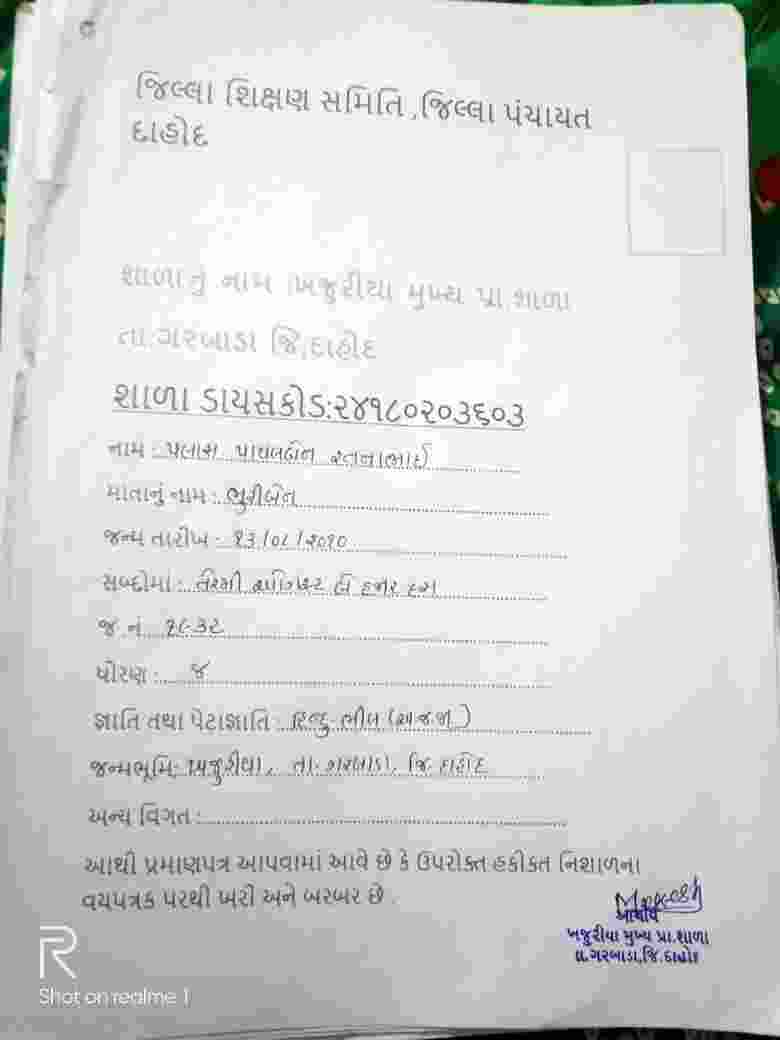 જિલ્લા શિક્ષણ સમિતિ,જિલ્લા પંચાયત
દાહોદ
શાળાનું નામ :ખજુરીયા મુખ્ય પ્રા.શાળા
તા.ગરબાડા જિ,દાહોદ
શાળા ડાયસકોડ:૨૪૧૮૦૨૦૩૬૦૩
નામ : પલાસ પાયલબેન રતનાભાઈ
માતાનું નામ : ભુરીબેન
જન્મ તારીખ : ૧૩/૦૮/૨૦૧૦
સબ્દોમાં : તેરમી ઓગષ્ટ બે હજાર દસ
જ નં ૧૯૩૨
ધોરણ : ૪
જ્ઞાતિ તથા પેટાજ્ઞાતિ : હિન્દુ ભીલ (અ.જ.જા)
જન્મભૂમિ: ખજુરીયા, તા. ગરબાડા. જિ. દાહોદ
અન્ય વિગત :
આથી પ્રમાણપત્ર આપવામાં આવે છે કે ઉપરોક્ત હકીકત નિશાળના
વયપત્રક પરથી ખરી અને બરબર છે .
આચાર્ય
ખજુરીયા મુખ્ય પ્રા.શાળા
તા.ગરબાડા,જિ.દાહોદ
R
Shot on realme 1